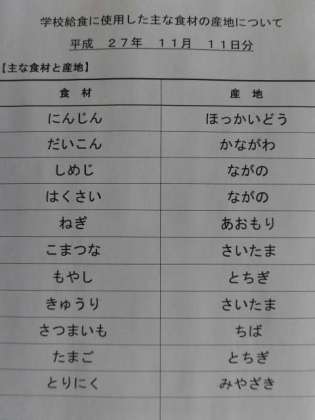 学校給食に使用した主な食材の産地について
平成 27年 11月 11日分
【主な食材と産地】
食材 産地
にんじん ほっかいどう
だいこん かながわ
しめじ ながの
はくさい ながの
ねぎ あおもり
こまつな さいたま
もやし とちぎ
きゅうり さいたま
さつまいも ちば
たまご とちぎ
とりにく みやざき